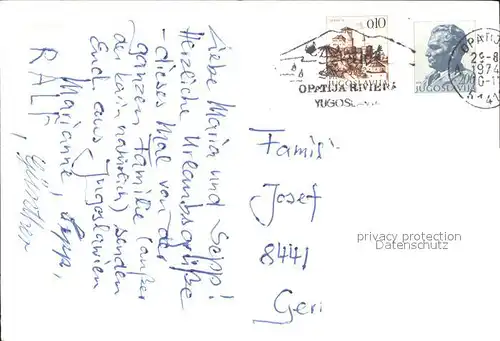 Liebe Maria und Sepp!
Herzliche Urlaubsgrüße
- dieses Mal von der
ganzen Familie (außer
der Karin natürlich) senden
Euch aus Jugoslawien
Marianne, Sepp,
RALF, Günther
0.10
JUGOSLAVIJA
OPATIJA RIVIERA
YUGOSLAVIA
2.00
JUGOSLAVIJA
OPATIJA
1974
Famili
Josef
8441
Geri
privacy protection
Datenschutz